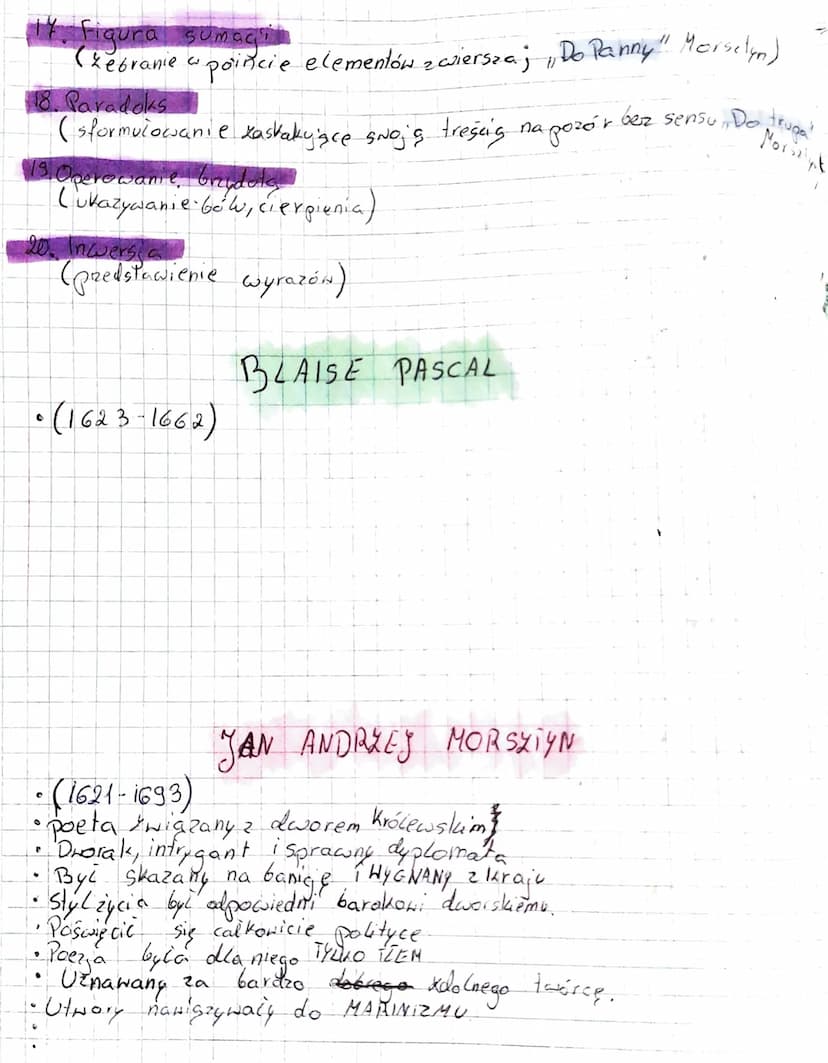 17. Figura sumacji
(zebranie w poincie elementów z wiersza; „Do Panny" Morsztyn)
18. Paradoks
(sformułowanie zaskakujące swoją treścią na pozór bez sensu „Do trupa"
Morsztyn
19. Operowanie brzydotą
(ukazywanie bólu, cierpienia)
20. Inwersja
(przedstawienie wyrazów)
BLAISE PASCAL
• (1623-1662)
JAN ANDRZEJ MORSZTYN
• (1621-1693)
• poeta związany z dworem Królewskim
• Dworak, intrygant i sprawny dyplomata
• Był skazany na banicję i WYGNANY z kraju
• Styl życia był odpowiedni barokowi dworskiemu.
• Poświęcił się całkowicie polityce
• Poezja była dla niego TYLKO TŁEM
• Uznawany za bardzo dobrego zdolnego twórcę.
• Utwory nawiązywały do MARINIZMU